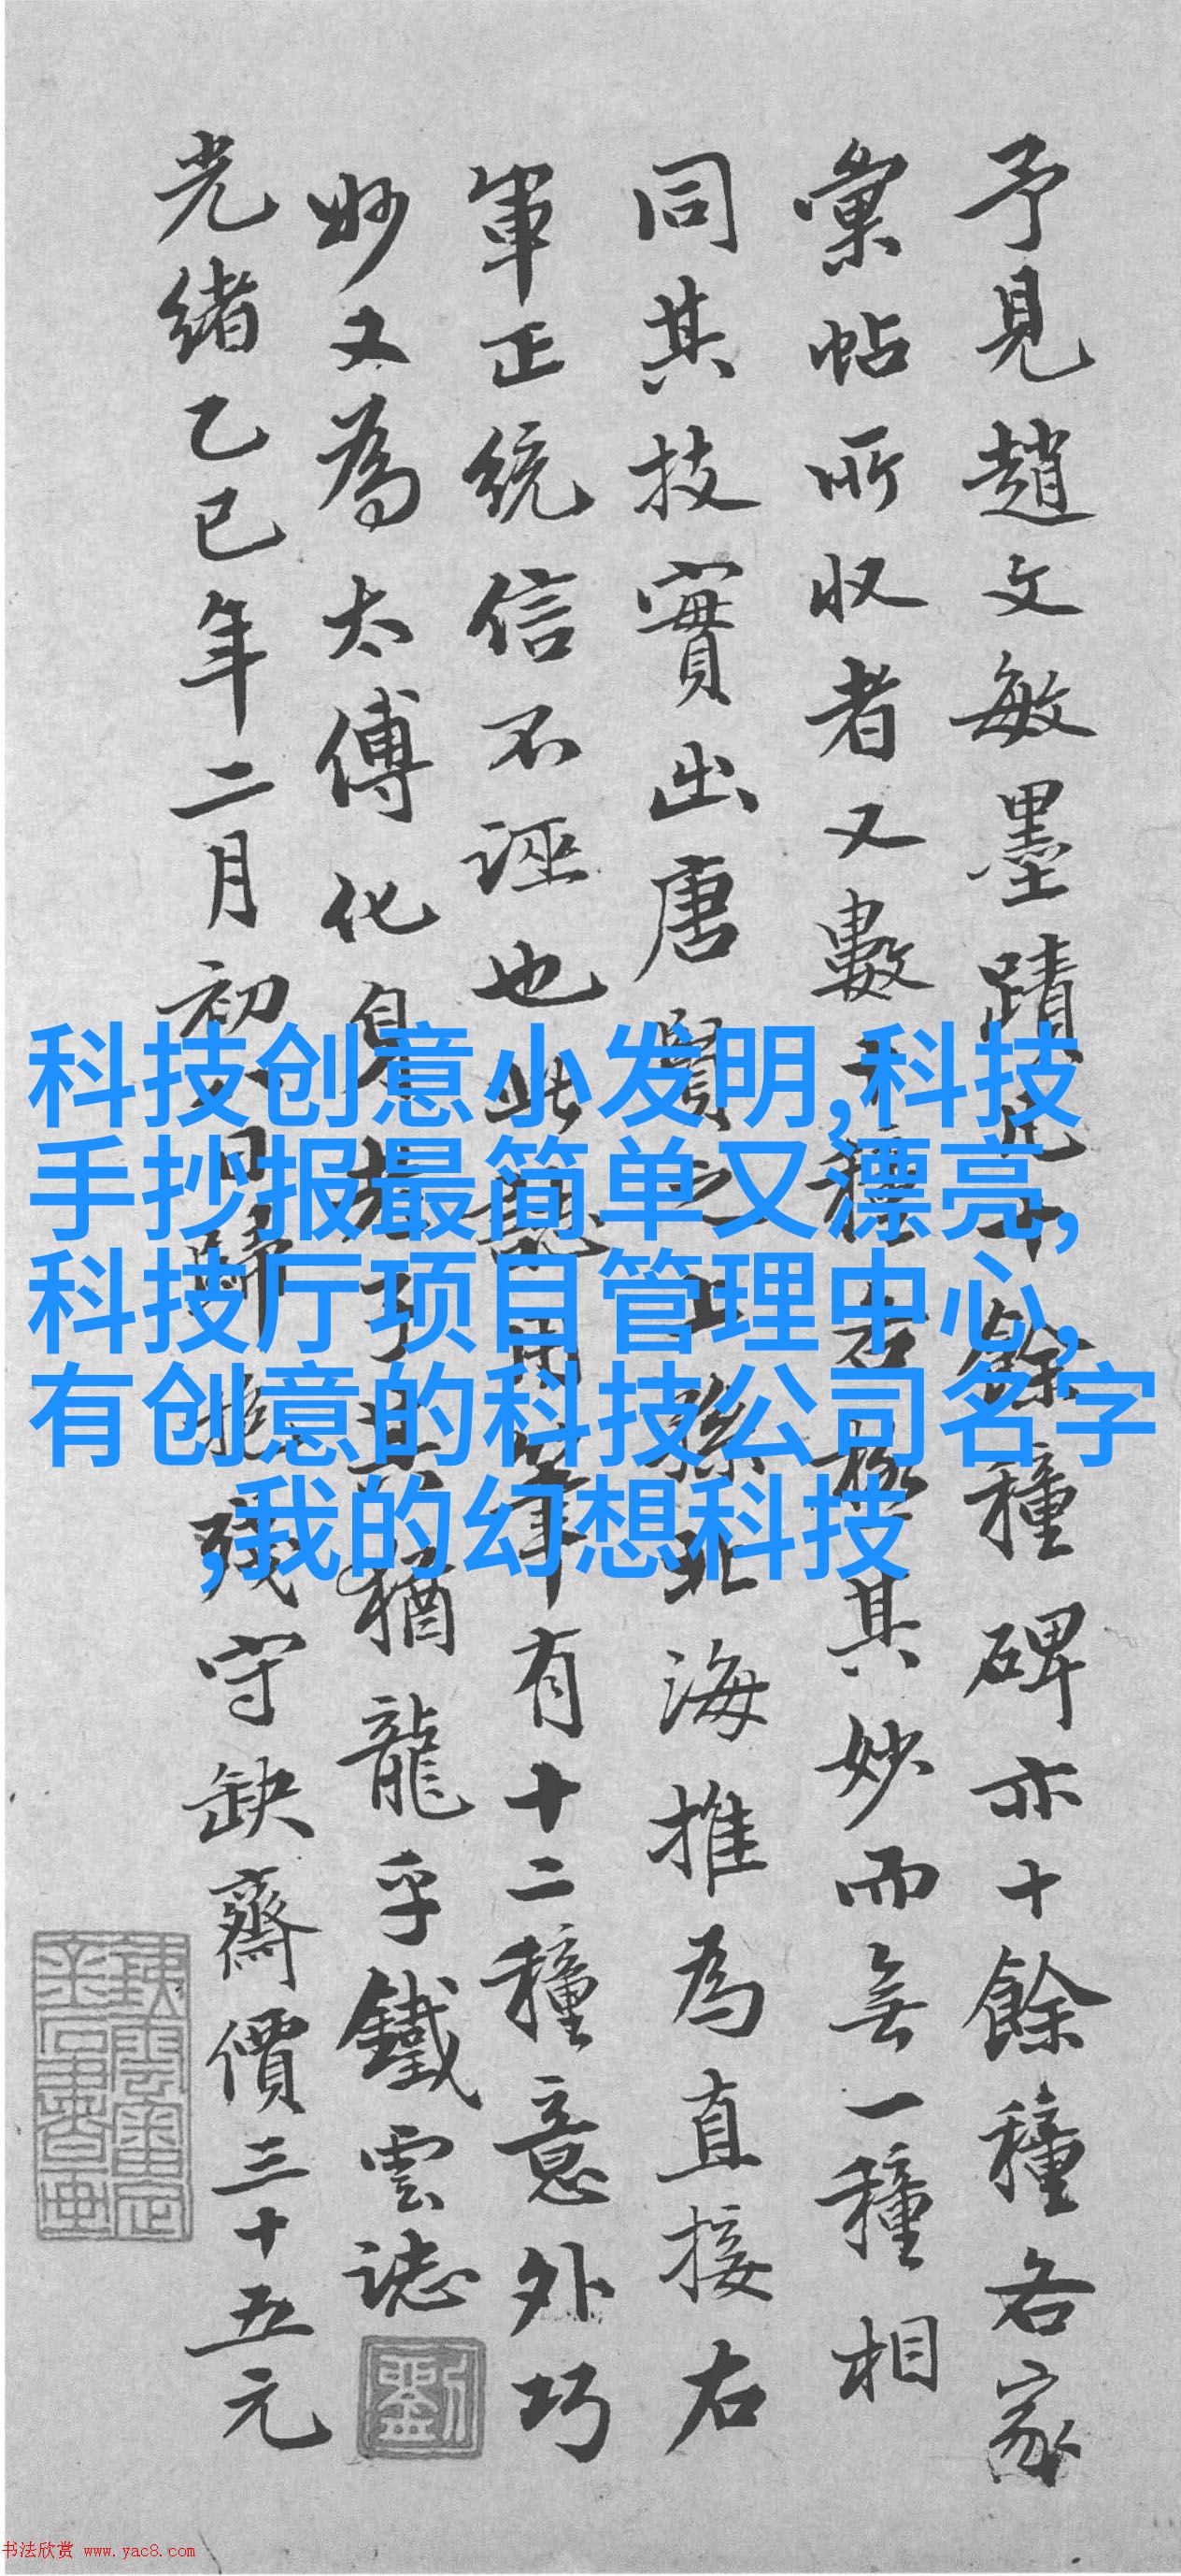 予見趙文敏墨蹟凡十餘種碑亦十餘種各家
彙帖所收者又數十種各極其妙而無一種相
同其技實出唐賢之上孫北海推為直接右
軍正統信不誣也此用筆有十二種意外巧
妙又為太傅化身其猶龍乎鐵雲誌
劉
光緒乙巳年二月初日歸抱殘守缺齋價三十五元
鐵雲審定
金石書畫
科技创意小发明,科技
手抄报最简单又漂亮,
科技厅项目管理中心,
有创意的科技公司名字
,我的幻想科技
书法欣赏 www.yac8.com